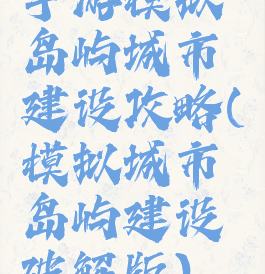 手游模拟
岛屿城市
建设攻略(
模拟城市
岛屿建设
破解版)